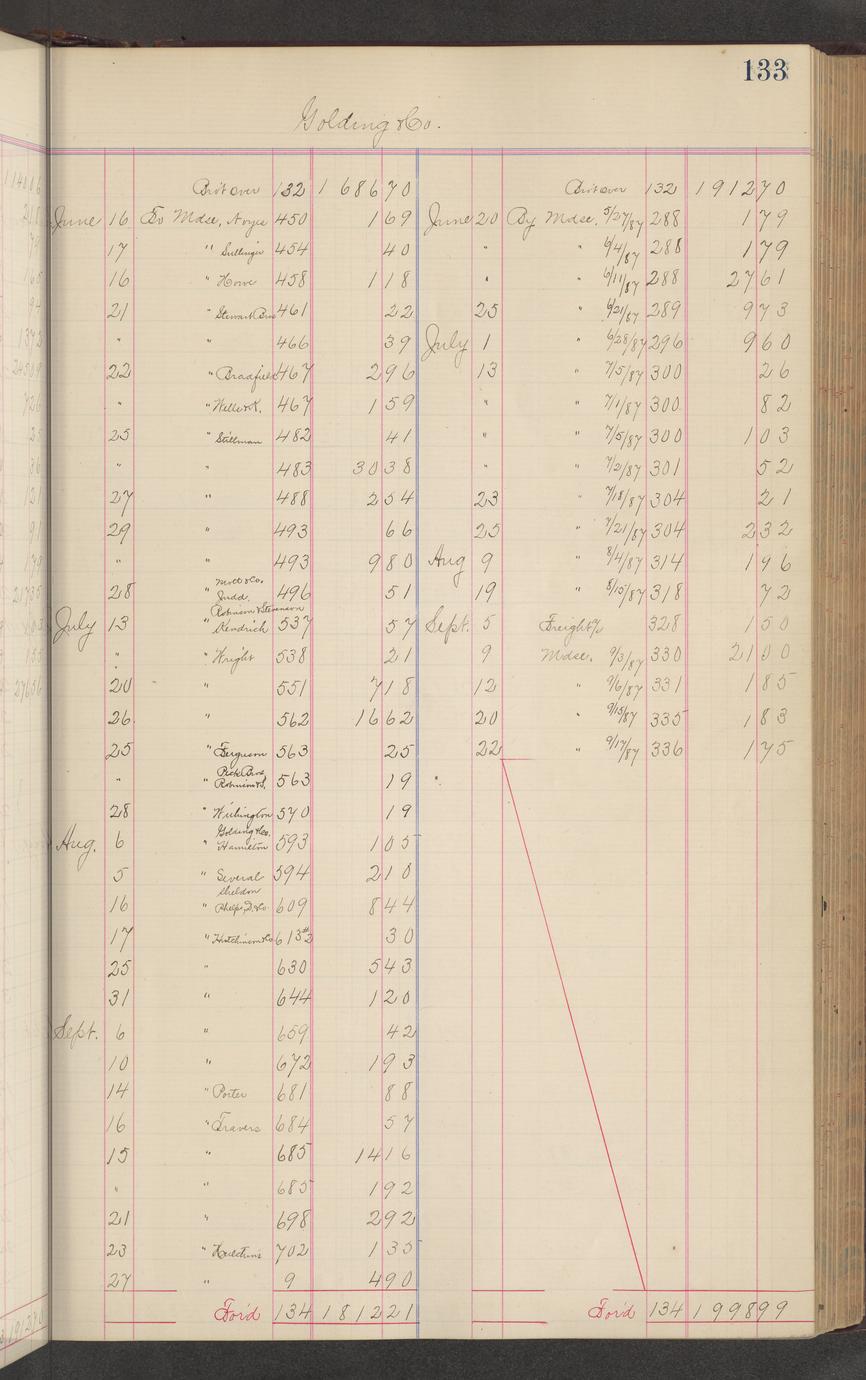 133
Golding & Co.
Bro't over 132 1 686 70
June 16 To Mdse, Noyes 450 1 69
17 " Sullinger 454 40
16 " Howe 458 1 18
21 " Stewart Bros 461 22
" " 466 39
22 " Bradfield 467 2 96
" " 467 1 59
25 " Stillman 482 41
" " 483 30 38
27 " 488 2 54
29 " 493 66
" " 493 9 80
28 " Mott & Co. Judd. 496 51
July 13 " Robinson & Stevenson Kendrich 537 57
" " Wright 538 21
20 " 551 7 18
26 " 562 16 62
25 " Ferguson 563 25
" " Peck Bros Robinson & S. 563 19
28 " Withington 570 19
Aug. 6 " Golding & Co. Hamilton 593 1 05
5 " Several 594 2 10
16 " Sheldon Phelps, D. & Co 609 8 44
17 " Hutchinson & Co 613 1/2 30
25 " 630 5 43
31 " 644 1 20
Sept. 6 " 659 42
10 " 672 1 93
14 " Porter 681 88
16 " Travers 684 57
15 " 685 14 16
" " 685 1 92
21 " 698 2 92
23 " Hutchins 702 1 35
27 " 9 4 90
For'd 134 1 812 21
Bro't over 132 1 912 70
June 20 By Mdse. 5/27/87 288 1 79
" " 6/4/87 288 1 79
" " 6/11/87 288 27 61
25 " 6/21/87 289 9 73
July 1 " 6/28/87 296 9 60
13 " 7/5/87 300 26
" " 7/1/87 300 82
" " 7/5/87 300 1 03
" " 7/2/87 301 52
23 " 7/18/87 304 21
25 " 7/21/87 304 2 32
Aug 9 " 8/4/87 314 1 96
19 " 8/15/87 318 72
Sept. 5 Freight % 328 1 50
9 Mdse. 9/3/87 330 21 00
12 " 9/6/87 331 1 85
20 " 9/15/87 335 1 83
22 " 9/17/87 336 1 75
For'd 134 1 998 99